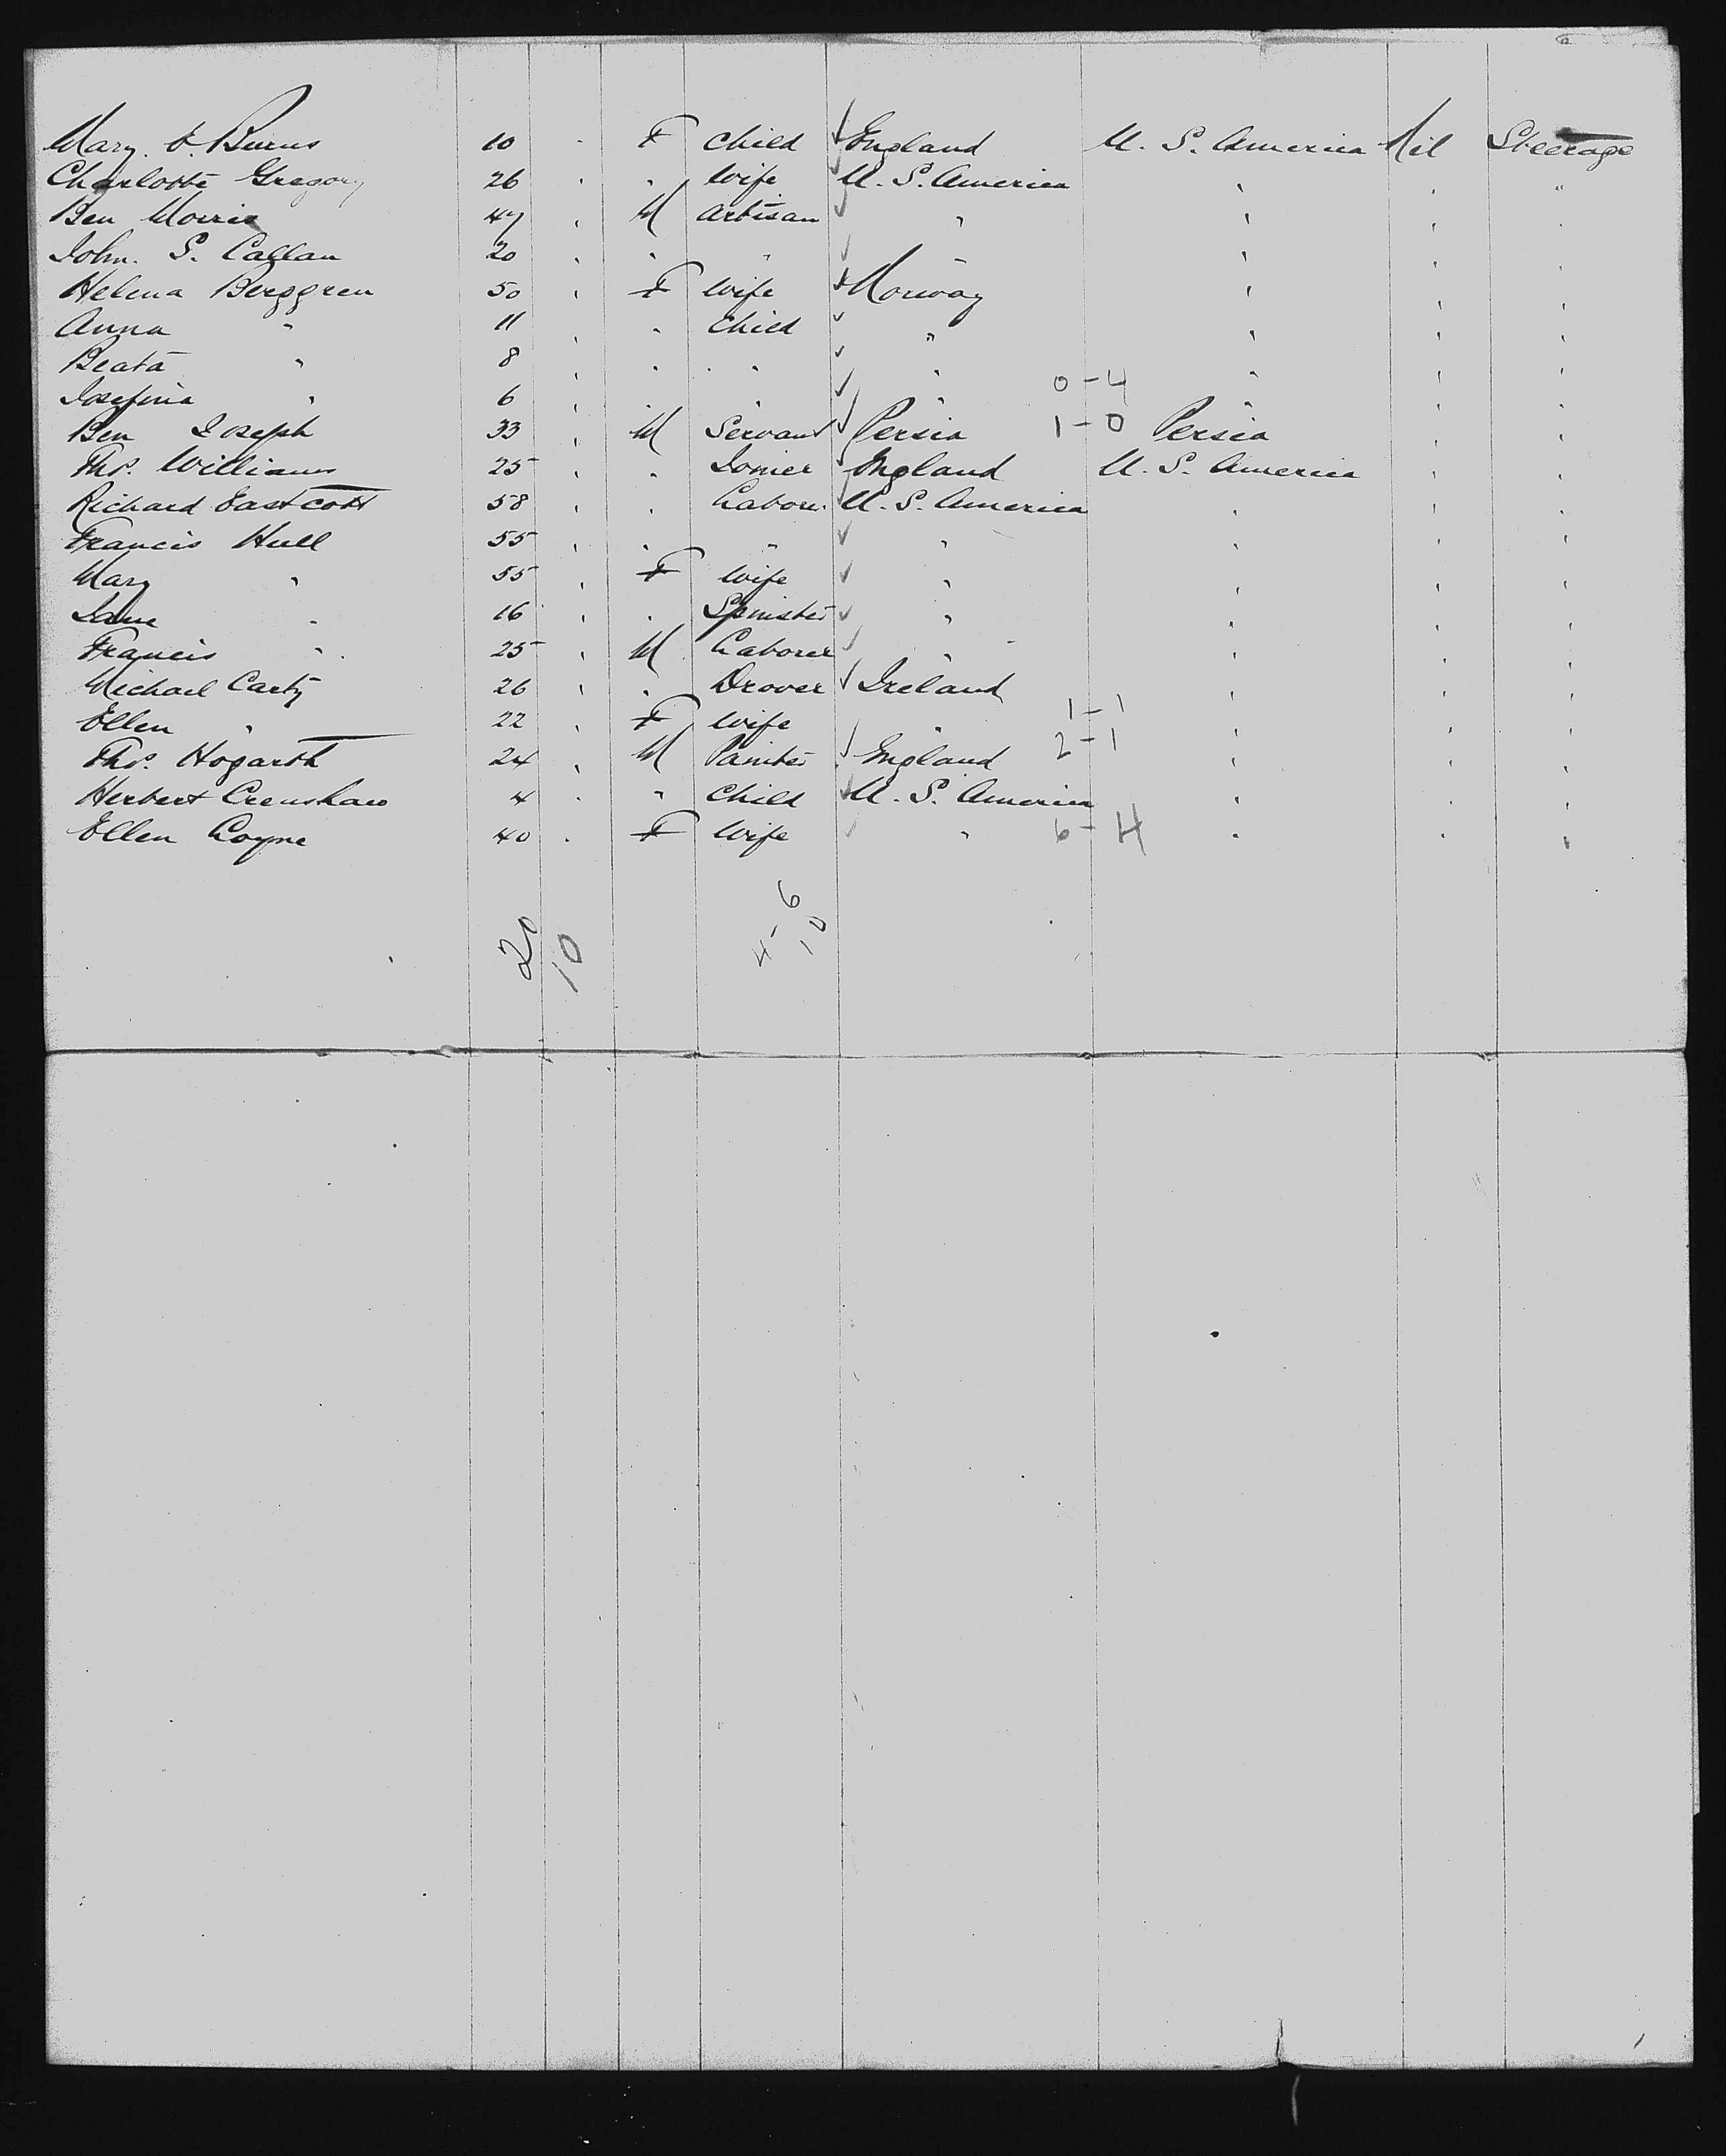 Mary. E. Burns 10 " F Child England U. S. America Nil Steerage
Charlotte Gregory 26 " " Wife U. S. America " " "
Ben Morris 47 " M Artisan " " " "
John. S. Callan 20 " " " " " " "
Helena Berggren 50 " F Wife Norway " " "
Anna " 11 " " Child " " " "
Beata " 8 " " " " " " "
Josefina " 6 " " " " 0-4 " " "
Ben Joseph 33 " M Servant Persia 1-0 Persia " "
Thos. Williams 25 " " Joiner England U. S. America " "
Richard Eastcott 58 " " Labor. U. S. America " " "
Francis Hull 55 " " " " " " "
Mary " 55 " F Wife " " " "
Jane " 16 " " Spinster " " " "
Francis " 25 " M Laborer " " " "
Michael Carty 26 " " Drover Ireland " " "
Ellen " 22 " F Wife " 1-1 " " "
Thos. Hogarth 24 " M Painter England 2-1 " " "
Herbert Crenshaw 4 " " Child U. S. America " " "
Ellen Coyne 40 " F Wife " 6-4 " " "
20 4-6
10 10